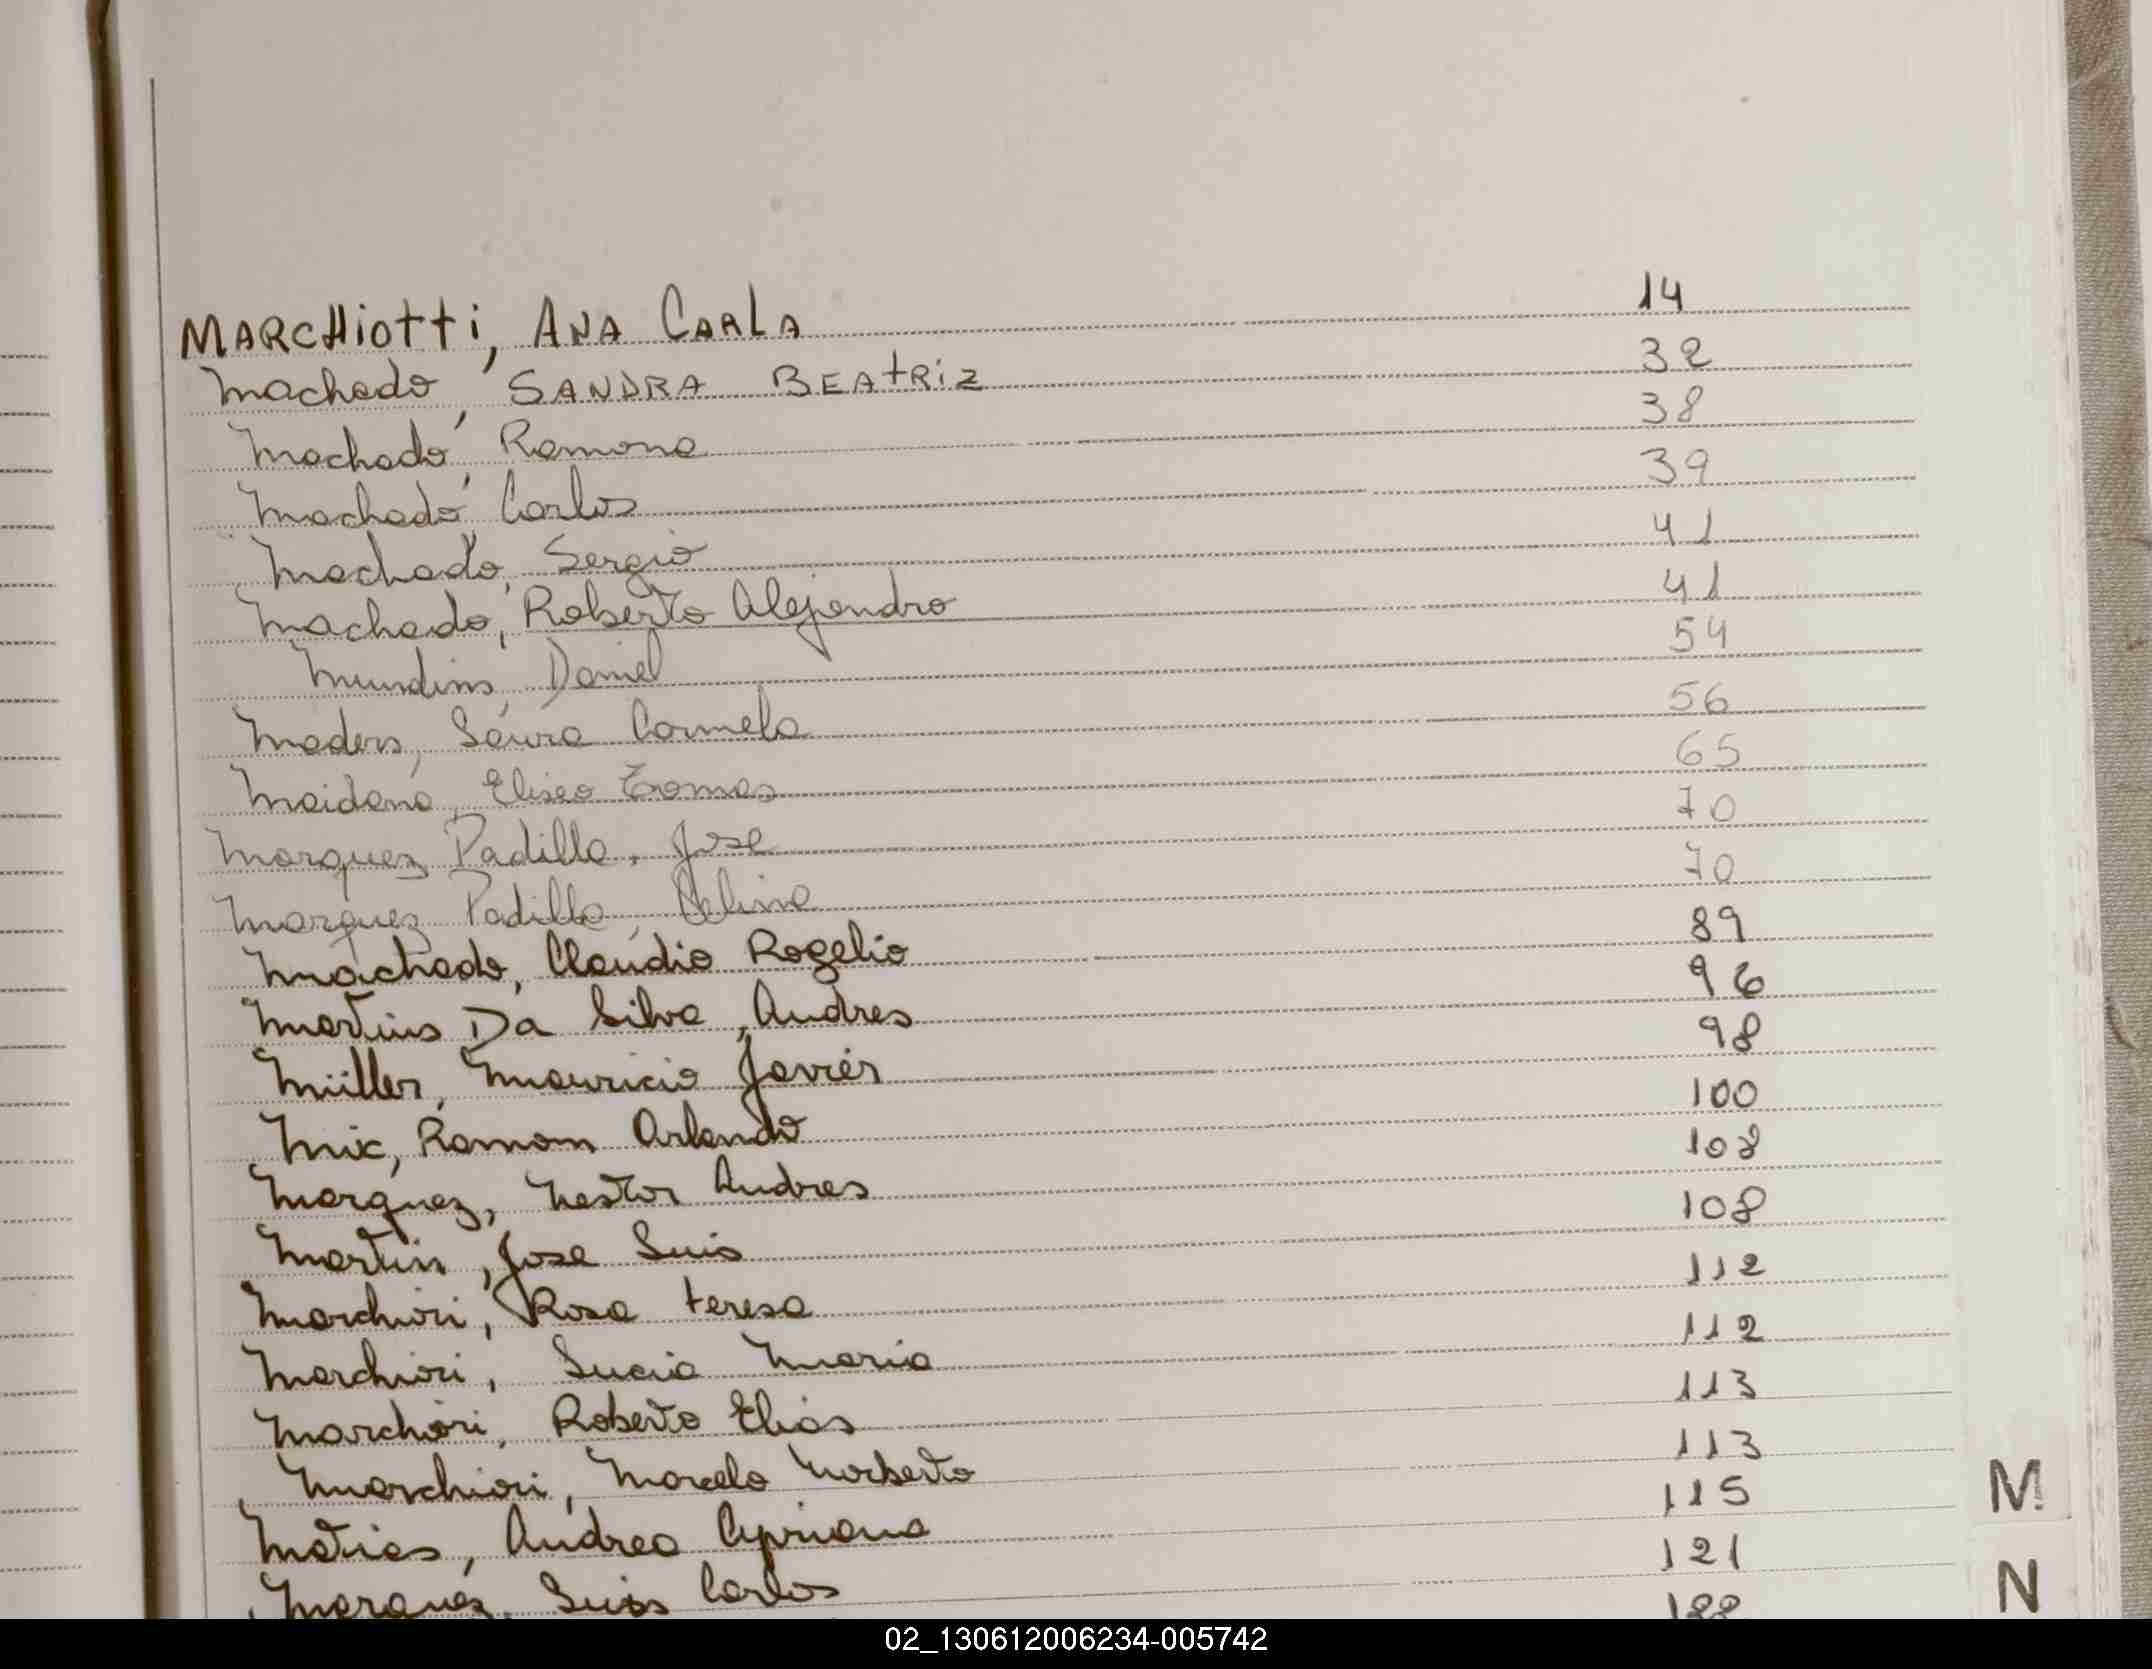 MARCHiottI, ANA CARLA 14
Machado, SANDRA BEAtRiz 32
Machado, Ramona 38
Machado, Carlos 39
Machado, Sergio 41
Machado, Roberto Alejandro 41
Daniel 54
Maders, Laura Carmela 56
Maidana, Eliseo Tomas 65
Marquez Padilla, Jose 70
Marquez Padilla, Celina 70
Machado, Claudio Rogelio 89
Martins Da Silva, Andres 96
Müller, Mauricio Javier 98
Mix, Ramon Orlando 100
Marquez, Nestor Andres 108
Martin, Jose Luis 108
Marchiori, Rosa teresa 112
Marchiori, Lucia Maria 112
Marchiori, Roberto Elias 113
Marchiori, Marcelo Norberto 113
Matias, Andrea Cipriana 115
Marques, Luis Carlos 121
M
N
02_130612006234-005742